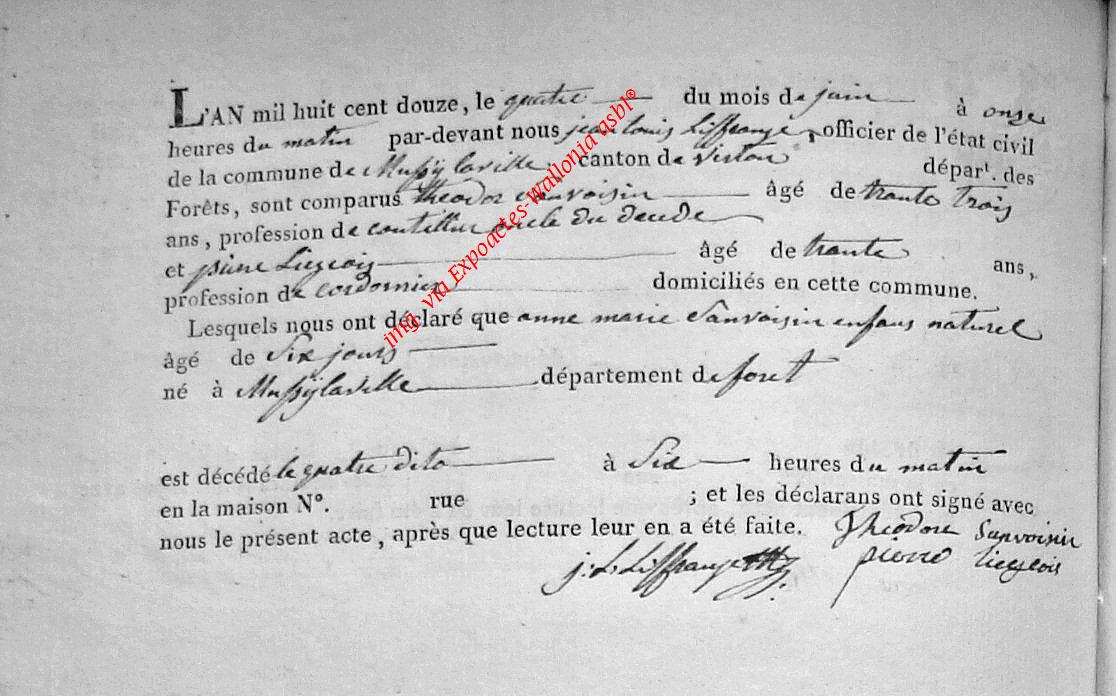 L'AN mil huit cent douze, le quatre du mois de juin à onze
heures du matin par-devant nous jean louis Liffrange, officier de l'état civil
de la commune de Mussÿ laville, canton de virton départ. des
Forêts, sont comparus theodor sanvoisin âgé de trante trois
ans, profession de coutillier oncle du decede
et piere Liegeois âgé de trante ans,
profession de cordonnier domiciliés en cette commune.
Lesquels nous ont déclaré que anne marie Sanvoisin enfans naturel
âgé de Six jours
né à Mussÿlaville département de foret
est décédé le quatre dito à Six heures du matin
en la maison N°. rue ; et les déclarans ont signé avec
nous le présent acte, après que lecture leur en a été faite. Theodore Sanvoisin
j. L. Liffrange pierre Liegeois
img. via Expoactes-Wallonia asbl®